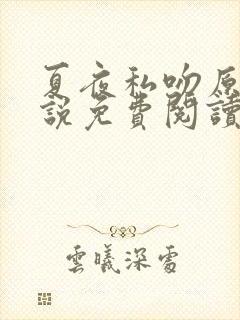 夏夜私吻原
說免費閱讀
雲曦深處